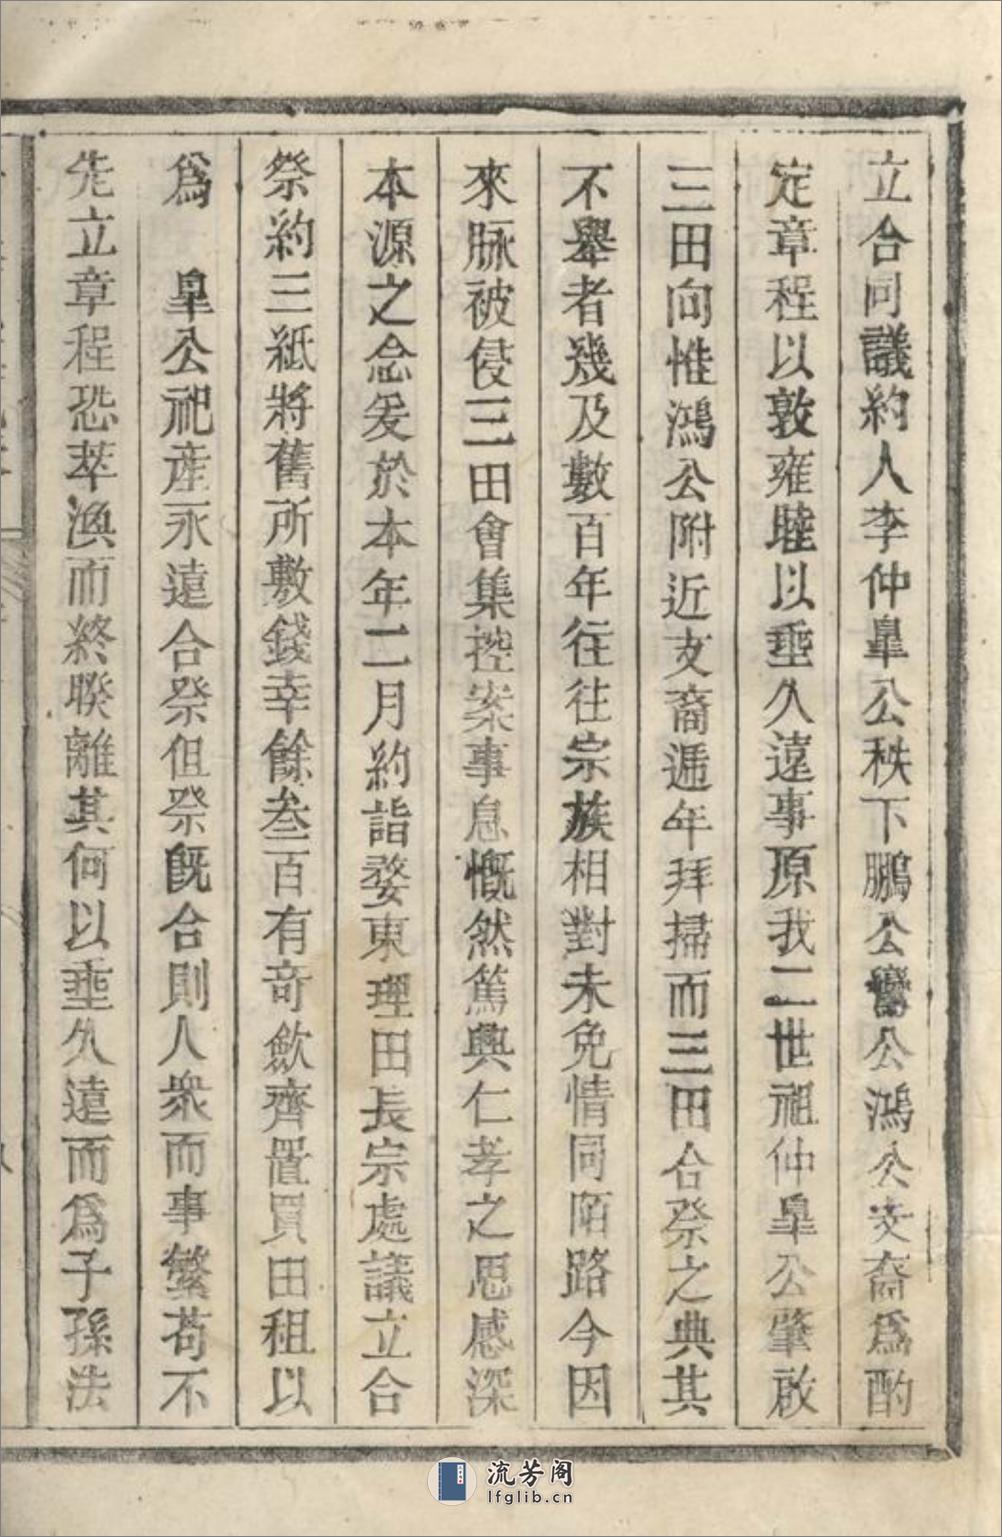 立合同議約人李仲臯公秩下鵬公鸞公鴻公支裔爲酌
定章程以敦雍睦以垂久遠事原我二世祖仲臯公肇啟
三田向惟鴻公附近支裔遞年拜掃而三田合祭之典其
不舉者幾及數百年往往宗族相對未免情同陌路今因
來脉被侵三田會集控案事息慨然篤興仁孝之思感深
本源之念爰於本年二月約詣婺東理田長宗處議立合
祭約三紙將舊所敷錢幸餘叁百有奇歛齊置買田租以
爲　臯公祀産永遠合祭但祭既合則人衆而事繁苟不
先立章程恐萃渙而終睽離其何以垂久遠而爲子孫法
流芳阁
lfglib.cn